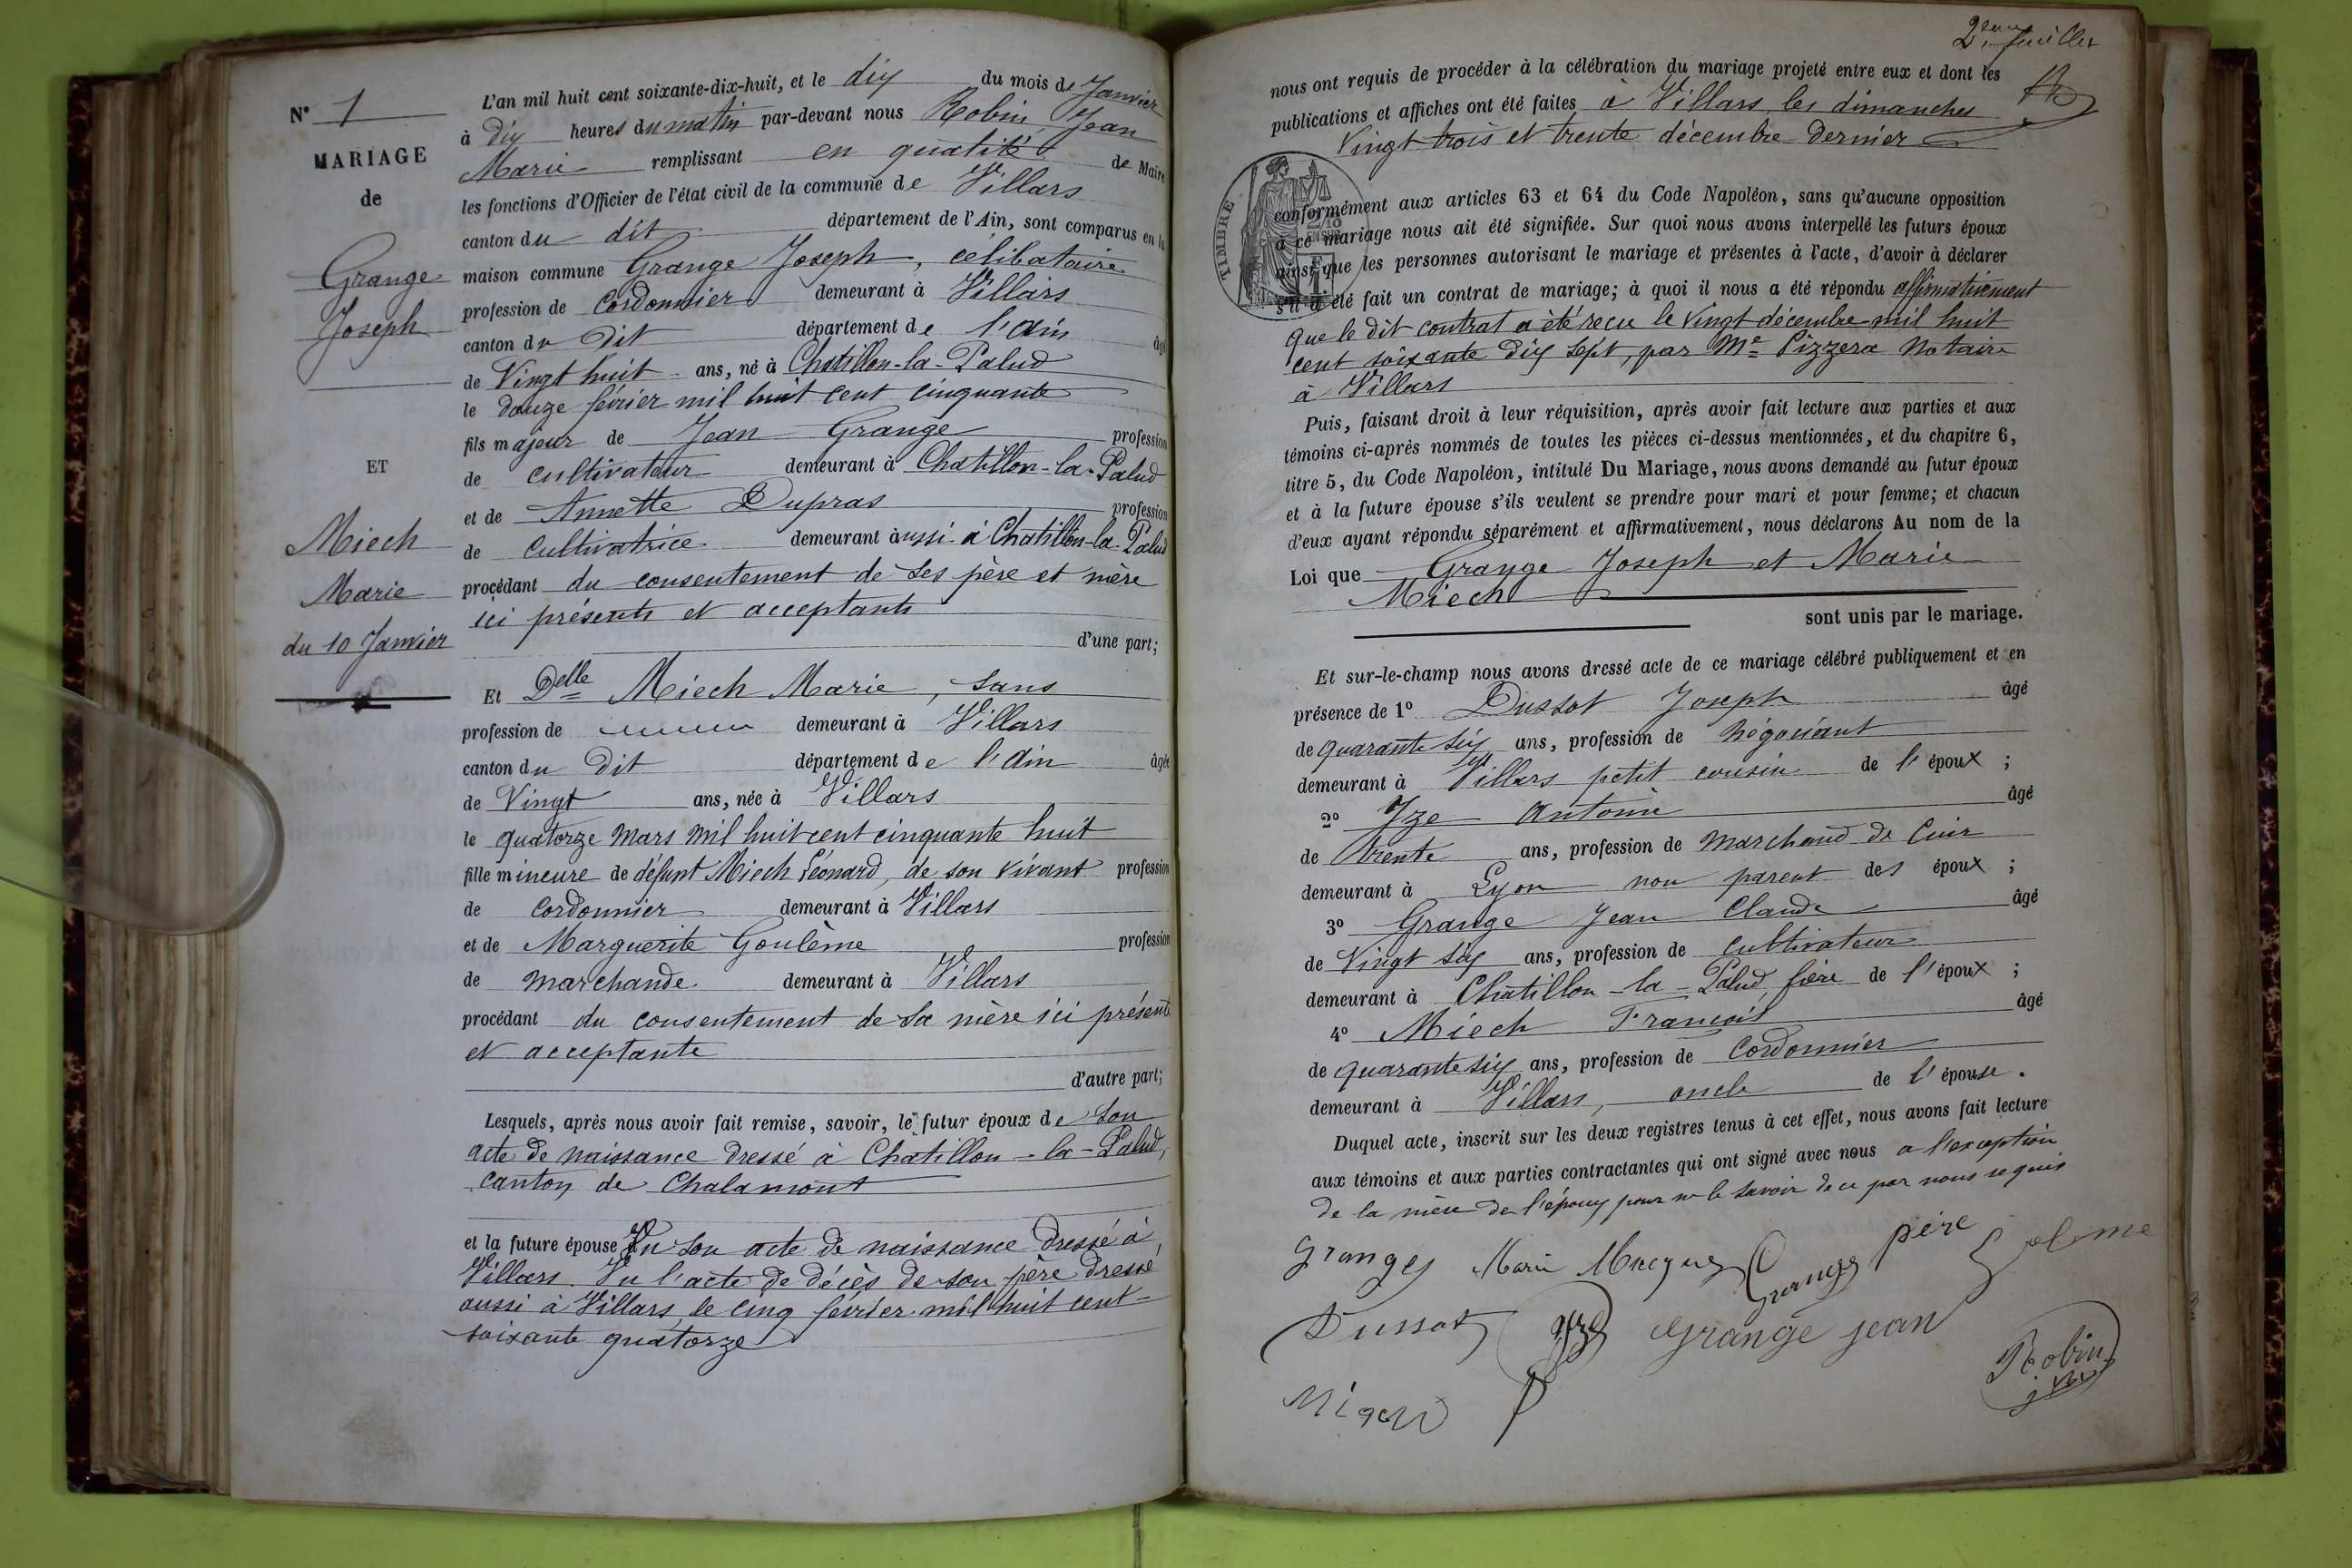 N° 1
MARIAGE
de
Grange
Joseph
ET
Miech
Marie
du 10 Janvier
L'an mil huit cent soixante-dix-huit, et le dix du mois de Janvier
à dix heures du matin par-devant nous Robin Jean
Marie remplissant en qualité de Maire
les fonctions d'Officier de l'état civil de la commune de Villars
canton du dit département de l'Ain, sont comparus en la
maison commune Grange Joseph, célibataire
profession de Cordonnier demeurant à Villars
canton du Dit département de l'Ain âgé
de Vingt huit ans, né à Chatillon-la-Palud
le douze février mil huit cent cinquante
fils majeur de Jean Grange profession
de cultivateur demeurant à Chatillon-la-Palud
et de Annette Dupras profession
de Cultivatrice demeurant aussi à Chatillon-la-Palud
procédant du consentement de ses père et mère
ici présents et acceptants
d'une part;
Et Delle Miech Marie, sans
profession de demeurant à Villars
canton du Dit département de l'Ain âgée
de Vingt ans, née à Villars
le quatorze Mars mil huit cent cinquante huit
fille mineure de défunt Miech Léonard, de son vivant profession
de Cordonnier demeurant à Villars
et de Marguerite Goulème profession
de marchande demeurant à Villars
procédant du consentement de sa mère ici présente
et acceptante
d'autre part;
Lesquels, après nous avoir fait remise, savoir, le futur époux de son
acte de naissance dressé à Chatillon-la-Palud,
canton de Chalamont
et la future épouse Vu son acte de naissance dressé à
Villars. Vu l'acte de décès de son père dressé
aussi à Villars, le cinq février mil huit cent
soixante quatorze
2eme feuillet
nous ont requis de procéder à la célébration du mariage projeté entre eux et dont les
publications et affiches ont été faites à Villars les dimanches
Vingt trois et trente décembre dernier
TIMBRE
2/10
EN SUS
1F
conformément aux articles 63 et 64 du Code Napoléon, sans qu'aucune opposition
à ce mariage nous ait été signifiée. Sur quoi nous avons interpellé les futurs époux
ainsi que les personnes autorisant le mariage et présentes à l'acte, d'avoir à déclarer
s'il a été fait un contrat de mariage; à quoi il nous a été répondu affirmativement
que le dit contrat a été recu le Vingt décembre mil huit
cent soixante dix sept, par Me Pizzera Notaire
à Villars
Puis, faisant droit à leur réquisition, après avoir fait lecture aux parties et aux
témoins ci-après nommés de toutes les pièces ci-dessus mentionnées, et du chapitre 6,
titre 5, du Code Napoléon, intitulé Du Mariage, nous avons demandé au futur époux
et à la future épouse s'ils veulent se prendre pour mari et pour femme; et chacun
d'eux ayant répondu séparément et affirmativement, nous déclarons Au nom de la
Loi que Grange Joseph et Marie
Miech
sont unis par le mariage.
Et sur-le-champ nous avons dressé acte de ce mariage célébré publiquement et en
présence de 1° Dussot Joseph âgé
de quarante six ans, profession de Négociant
demeurant à Villars petit cousin de l'époux ;
2° Ize Antoine âgé
de trente ans, profession de Marchand de Cuir
demeurant à Lyon non parent des époux ;
3° Grange Jean Claude âgé
de Vingt six ans, profession de cultivateur
demeurant à Chatillon-la-Palud, frère de l'époux ;
4° Miech François âgé
de quarante six ans, profession de Cordonnier
demeurant à Villars, oncle de l'épouse.
Duquel acte, inscrit sur les deux registres tenus à cet effet, nous avons fait lecture
aux témoins et aux parties contractantes qui ont signé avec nous a l'exception
de la mère de l'époux pour ne le savoir de ce par nous requis
Granges Marie Grange père
Dussot Ize Grange Jean
Robin